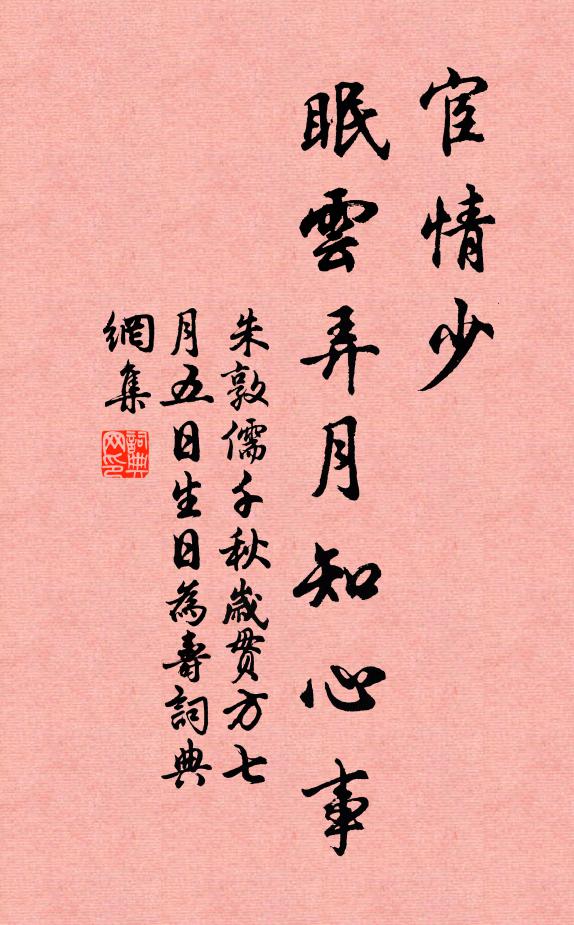 宦情少
眠雲弄月知心事
朱敦儒千秋歲貫方七
月五日生日為壽詞典
網集
詞典网印